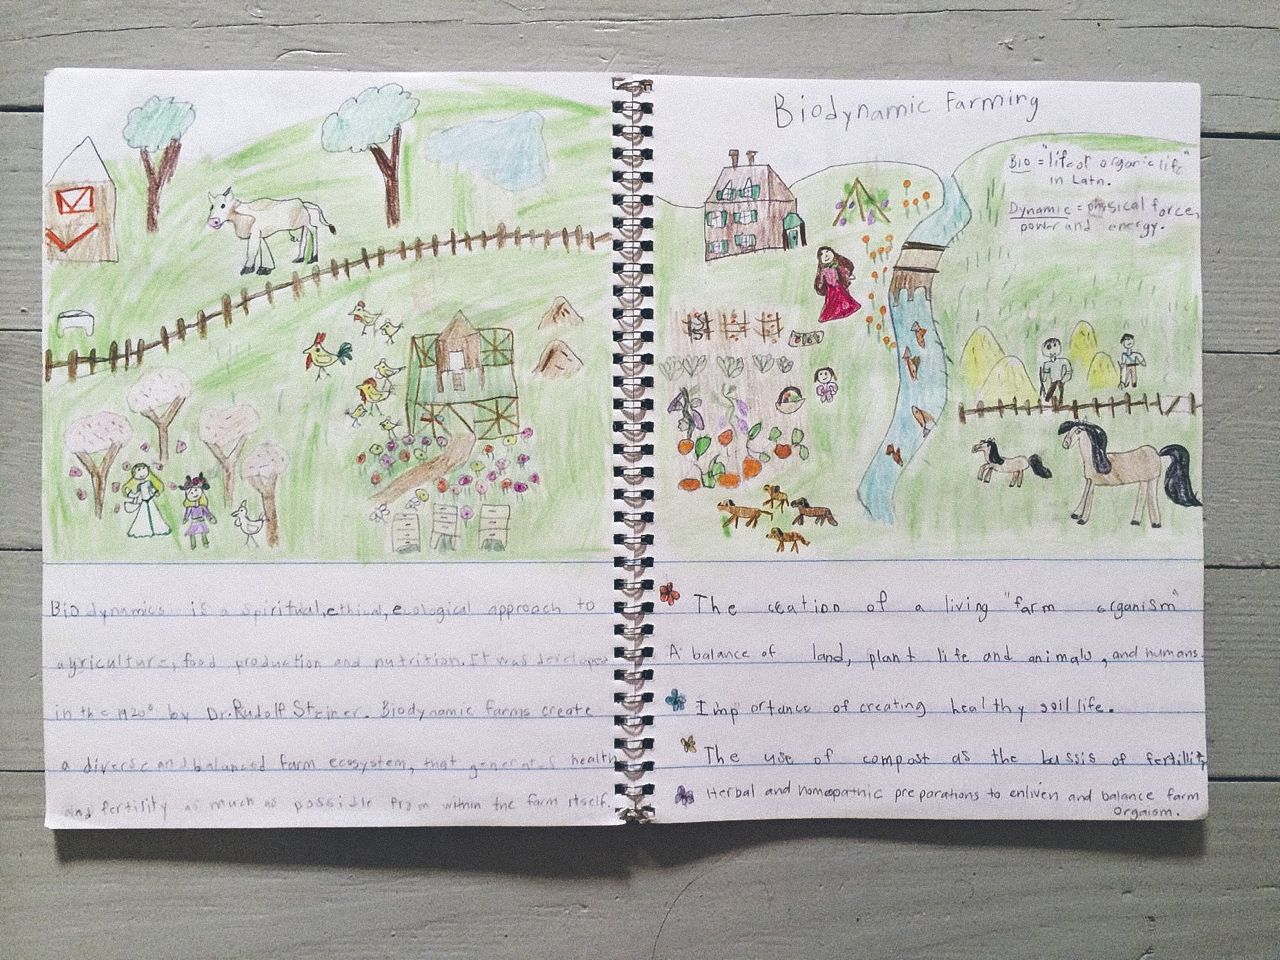 Biodynamics is a spiritual, ethical, ecological approach to
agriculture, food production and nutrition. It was developed
in the 1920s by Dr. Rudolf Steiner. Biodynamic farms create
a diverse and balanced farm ecosystem, that generates health
and fertility as much as possible from within the farm itself.
Biodynamic Farming
Bio = "life or organic life"
in Latn.
Dynamic = physical force,
power and energy.
The ceation of a living "farm organism"
A balance of land, plant life and animals, and humans
Importance of creating healthy soil life.
The use of compost as the bassis of fertillity
Herbal and homeopathic preparations to enliven and balance farm
orgaism.